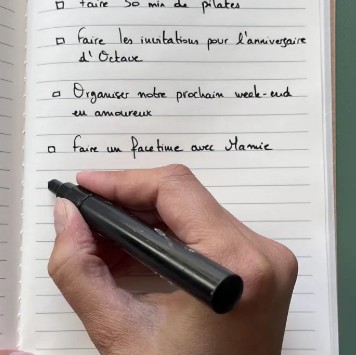 □ Faire 30 min de pilates
□ Faire les invitations pour l'anniversaire
d'Octave
□ Organiser notre prochain week-end
en amoureux
□ Faire un facetime avec Mamie